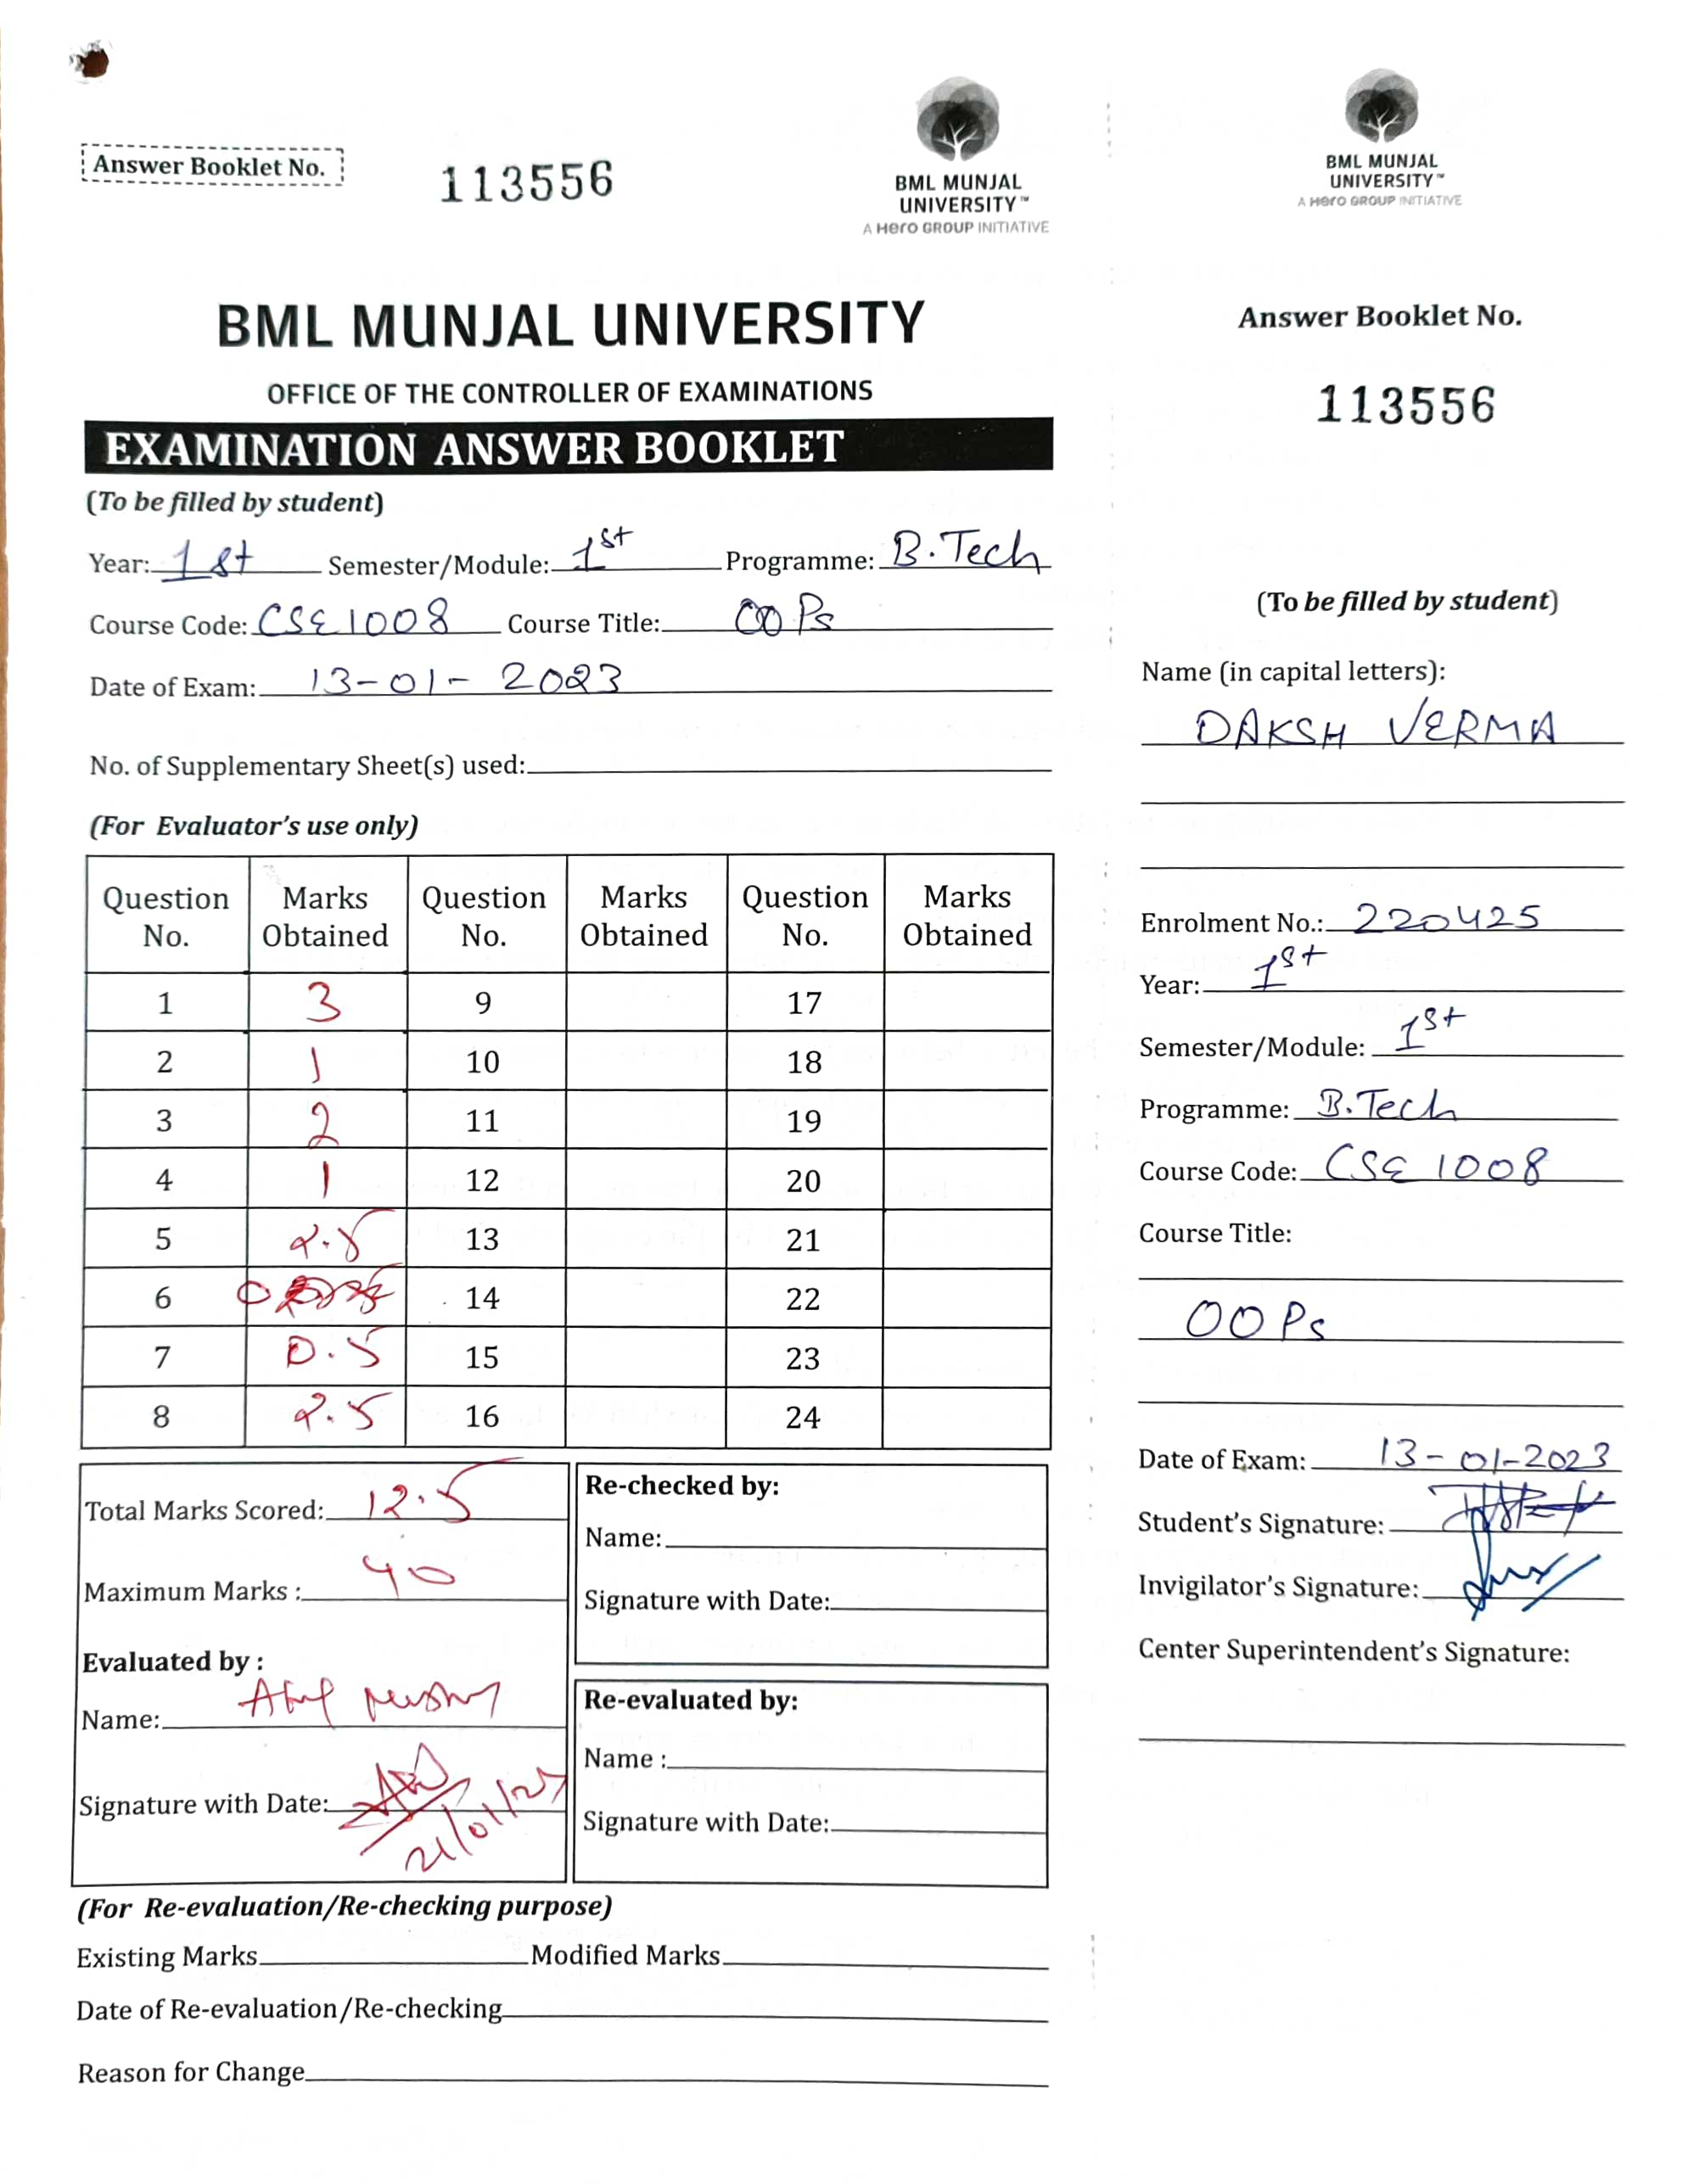 Answer Booklet No. 113556
BML MUNJAL
UNIVERSITY™
A Hero GROUP INITIATIVE
BML MUNJAL UNIVERSITY
OFFICE OF THE CONTROLLER OF EXAMINATIONS
EXAMINATION ANSWER BOOKLET
(To be filled by student)
Year: 1st Semester/Module: 1st Programme: B.Tech
Course Code: CSE1008 Course Title: OOPs
Date of Exam: 13-01-2023
No. of Supplementary Sheet(s) used:
(For Evaluator's use only)
Question No. Marks Obtained Question No. Marks Obtained Question No. Marks Obtained
1 3 9 17
2 1 10 18
3 2 11 19
4 1 12 20
5 2.5 13 21
6 0 14 22
7 0.5 15 23
8 2.5 16 24
Total Marks Scored: 12.5
Maximum Marks : 40
Evaluated by :
Name:
Signature with Date:
Re-checked by:
Name:
Signature with Date:
Re-evaluated by:
Name :
Signature with Date:
(For Re-evaluation/Re-checking purpose)
Existing Marks Modified Marks
Date of Re-evaluation/Re-checking
Reason for Change
BML MUNJAL
UNIVERSITY™
A Hero GROUP INITIATIVE
Answer Booklet No.
113556
(To be filled by student)
Name (in capital letters):
DAKSH VERMA
Enrolment No.: 220425
Year: 1st
Semester/Module: 1st
Programme: B.Tech
Course Code: CSE 1008
Course Title:
OOPs
Date of Exam: 13-01-2023
Student's Signature:
Invigilator's Signature:
Center Superintendent's Signature: